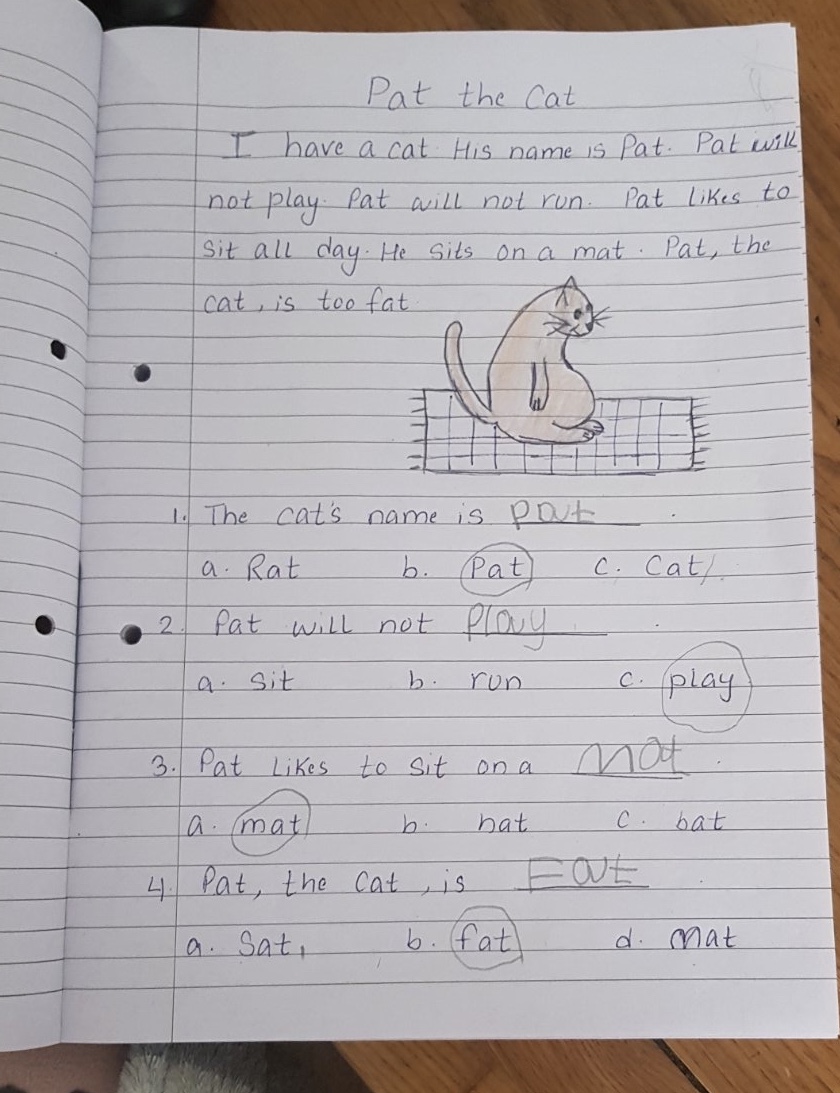 Pat the Cat
I have a cat. His name is Pat. Pat will
not play. Pat will not run. Pat likes to
sit all day. He sits on a mat. Pat, the
cat, is too fat
1. The cat's name is pat.
a. Rat b. Pat c. Cat
2. Pat will not Play.
a. sit b. run c. play
3. Pat likes to sit on a mat.
a. mat b. hat c. bat
4. Pat, the cat, is Fat.
a. Sat, b. fat d. mat